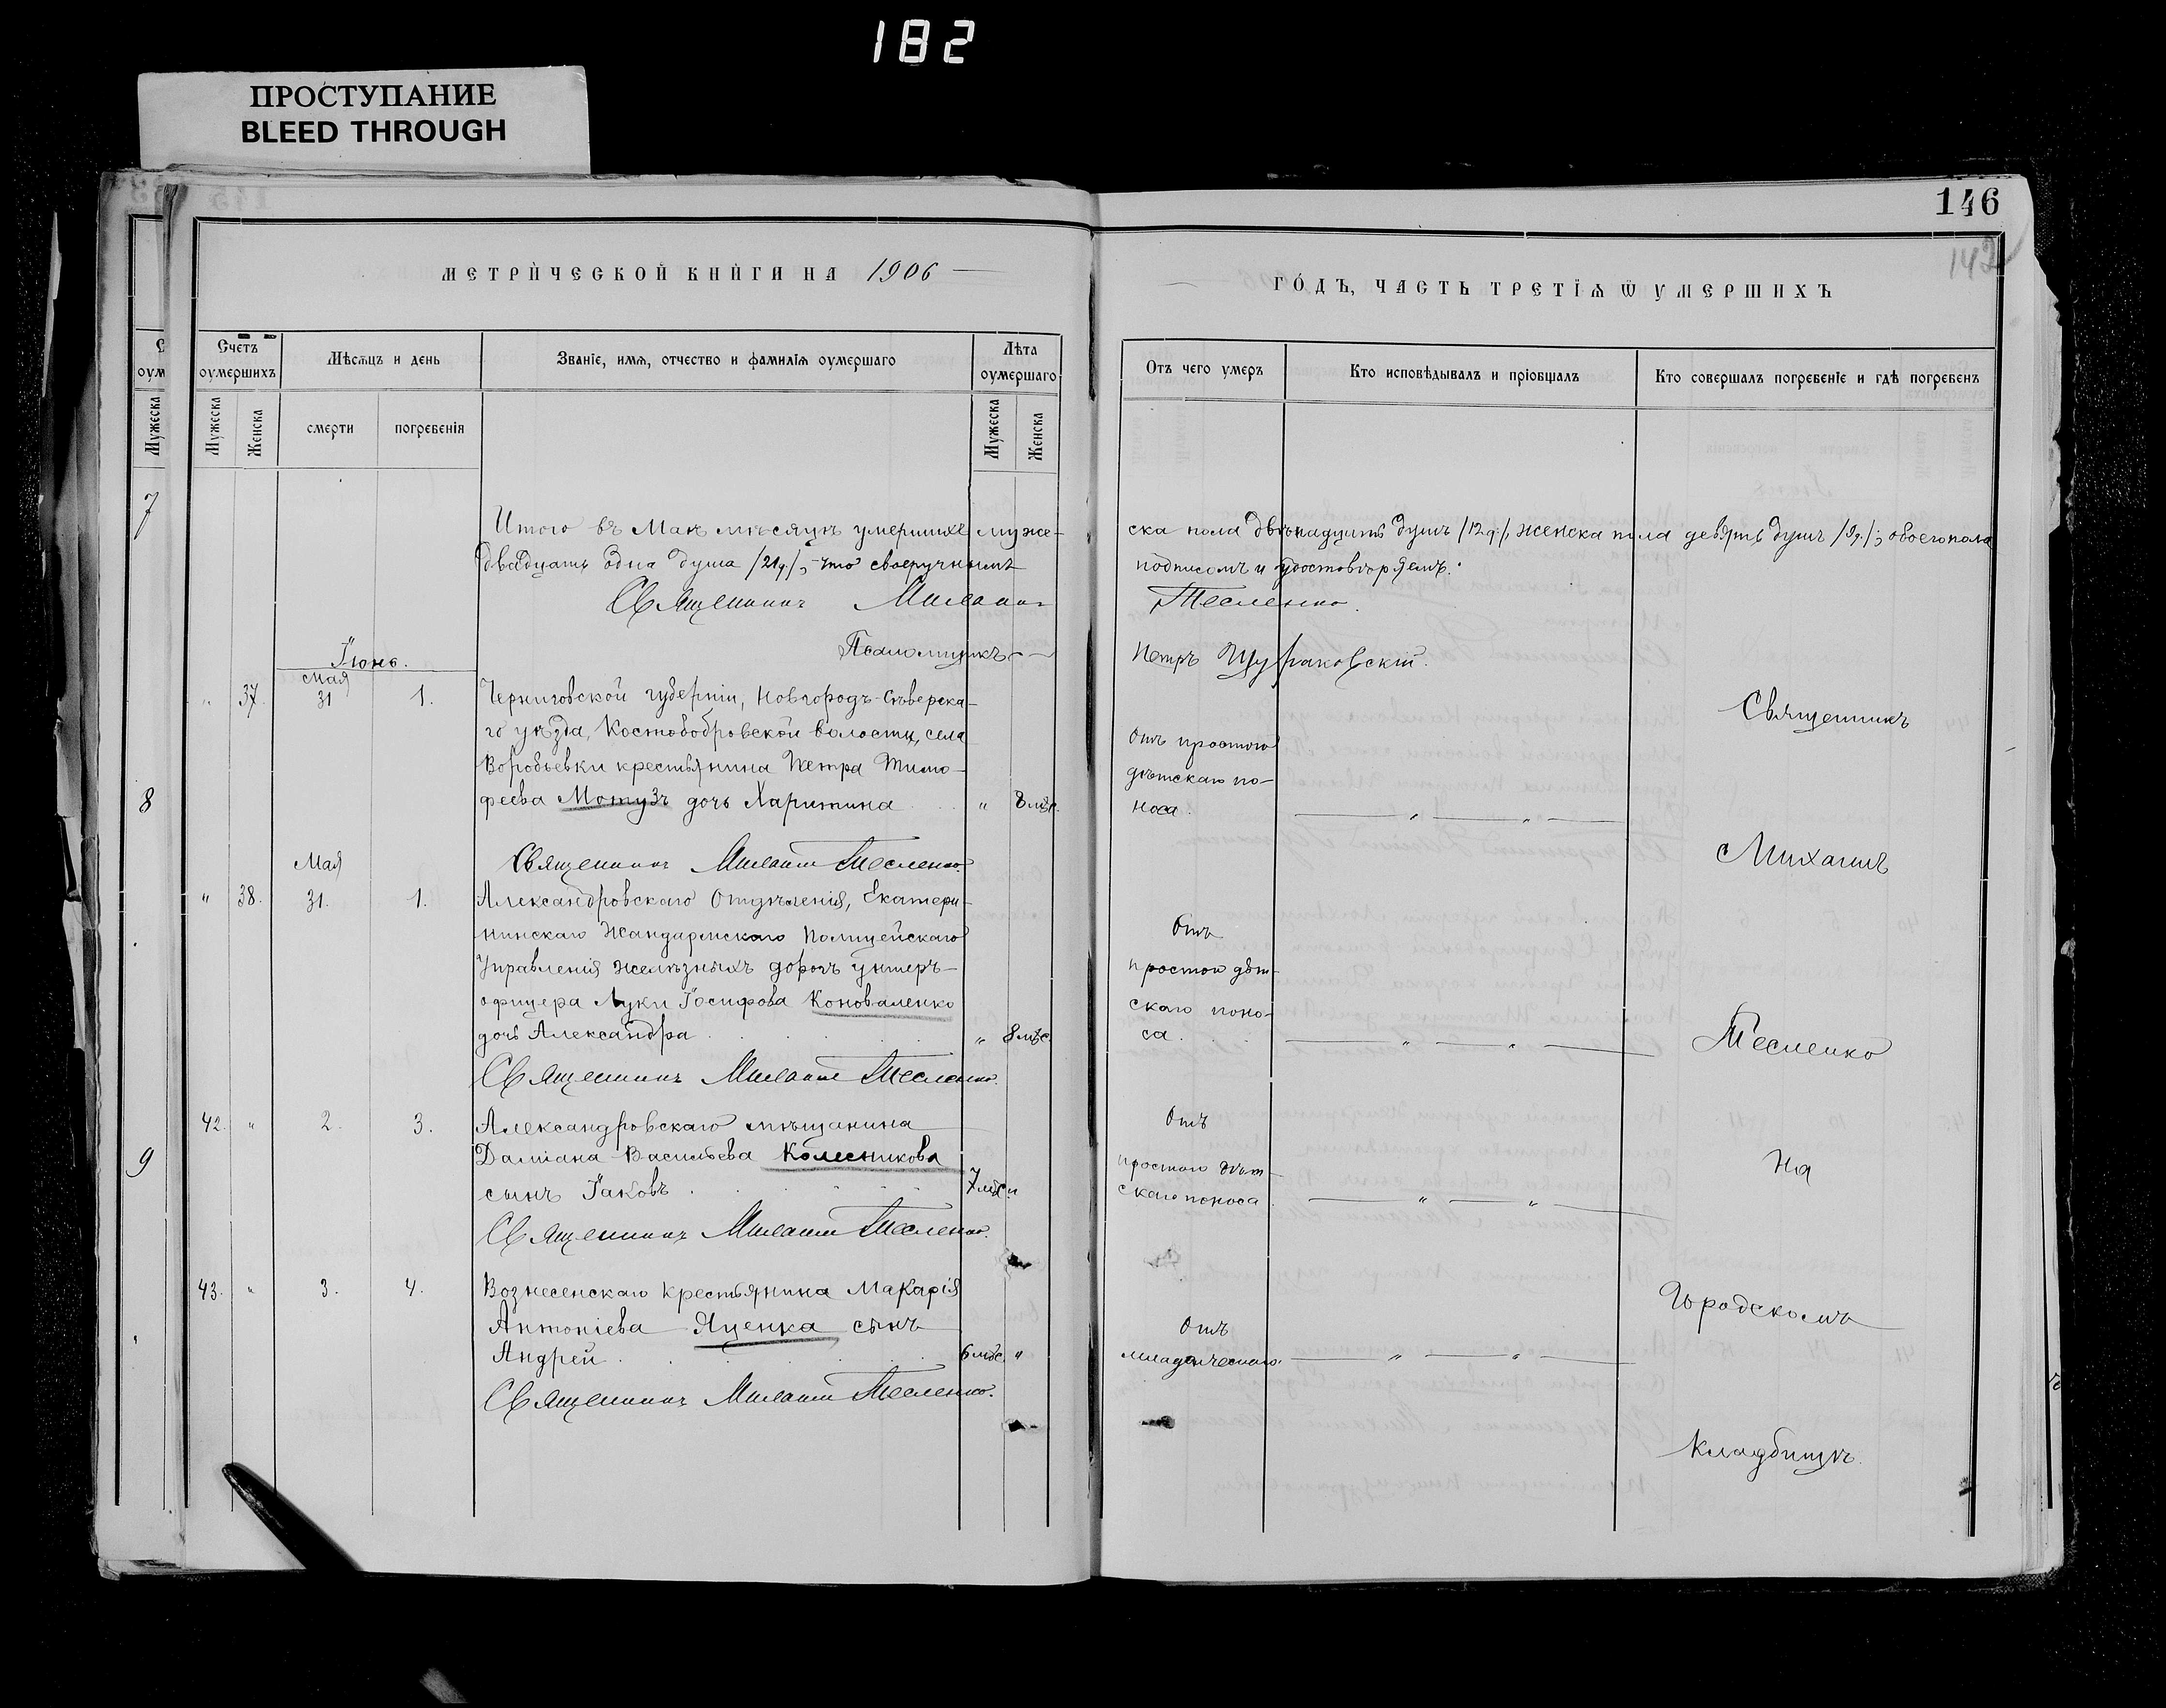 182
ПРОСТУПАНИЕ
BLEED THROUGH
146
142
МЕТРИЧЕСКОЙ КНИГИ НА 1906
ГОДЪ, ЧАСТЬ ТРЕТІѦ Ѿ УМЕРШИХЪ
Счетъ оумершихъ
Мѣсѧцъ и день
Званіе, имѧ, отчество и фамиліѧ оумершаго
Лѣта оумершаго
Отъ чего умеръ
Кто исповѣдывалъ и пріобщалъ
Кто совершалъ погребеніе и гдѣ погребенъ
Мужеска
Женска
смерти
погребенія
Мужеска
Женска
Итого въ Маѣ мѣсяцѣ умершихъ муже-
ска пола двѣнадцать душъ /12 д/, женска пола девять душъ /9 д./; обоего пола
двадцать одна душа /21 д/, что своеручнымъ
подписомъ и удостовѣряемъ.
Священникъ Михаилъ
Тесленко.
Псаломщикъ
Петръ Щураковскій.
Іюнь.
Мая
" 37. 31 1. Черниговской губерніи, Новгородъ-Сѣверска-
го уѣзда, Костобобровской волости, села
Воробьевки крестьянина Петра Тимо-
феева Мотузъ дочь Харитина . . " 8 мѣс.
Отъ простого
дѣтскаго по-
носа.
Священникъ Михаилъ Тесленко.
Мая
" 38. 31. 1. Александровскаго Отдѣленія, Екатери-
нинскаго Жандармскаго Полицейскаго
Управленія желѣзныхъ дорогъ унтеръ-
офицера Луки Іосифова Коноваленко
дочь Александра . . . . " 8 мѣс.
Отъ
простой дѣт-
скаго поно-
са.
Священникъ Михаилъ Тесленко.
42. " 2. 3. Александровскаго мѣщанина
Даміана Васильева Колесникова
сынъ Іаковъ . . . . 7 мѣс. "
Отъ
простого дѣт-
скаго поноса
Священникъ Михаилъ Тесленко.
43. " 3. 4. Вознесенскаго крестьянина Макарія
Антоніева Яценка сынъ
Андрей . . . . 6 мѣс. "
Отъ
младенческаго.
Священникъ Михаилъ Тесленко.
Священникъ
Михаилъ
Тесленко
На
Городскомъ
Кладбищѣ.
7
8
9